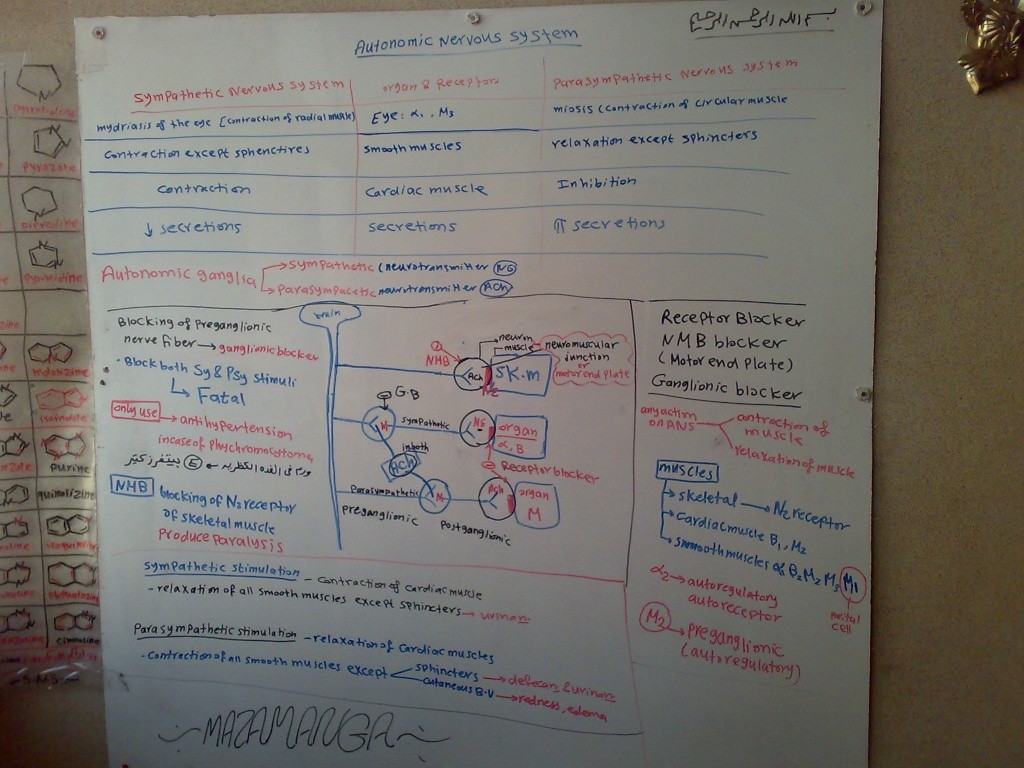 بسم الله الرحمن الرحيم
Autonomic Nervous system
sympathetic Nervous system
organ & Receptors
Parasympathetic Nervous system
mydriasis of the eye [contraction of radial muscle)
Eye: α1, M3
miosis (contraction of circular muscle
contraction except sphenctires
smooth muscles
relaxation except sphincters
contraction
Cardiac muscle
Inhibition
↓ secretions
secretions
⇈ secretions
Autonomic ganglia
→ sympathetic (neurotransmitter NE
→ Parasympatetic neurotransmitter ACh
Blocking of Preganglionic
nerve fiber → ganglionic blocker
· Block both Sy & Psy stimuli
↳ Fatal
only use → antihypertension
incase of Phychromcetoma
NMB blocking of N2 receptor
of skeletal muscle
Produce paralysis
brain
NMB
neuron
muscle
neuromuscular
junction
or
motor end plate
ACh
N2
SK.m
G.B
N
sympathetic
NE
organ
α, B
inboth
ACh
Receptor blocker
Parasympathetic
N
ACh
organ
M
Preganglionic
Postganglionic
Receptor Blocker
NMB blocker
(Motor end Plate)
Ganglionic blocker
any action
on ANS
contraction of
muscle
relaxation of muscle
muscles
→ skeletal → N2 receptor
→ Cardiac muscle B1, M2
→ smmooth muscles of B2 M2 M3 M1
cell
α2 → autoregulatory
autoreceptor
M2 → preganglionic
(autoregulatory)
sympathetic stimulation - contraction of cardiac muscle
- relaxation of all smooth muscles except sphincters → urinan
Parasympathetic stimulation - relaxation of Cardiac muscles
- Contraction of all smooth muscles except
sphincters → defecan & urinan
cutaneous B.V → redness, edema
~MAZAMANGA~
Pyrazole
Pyrimidine
Indolizine
Isoindole
Purine
quinolizine